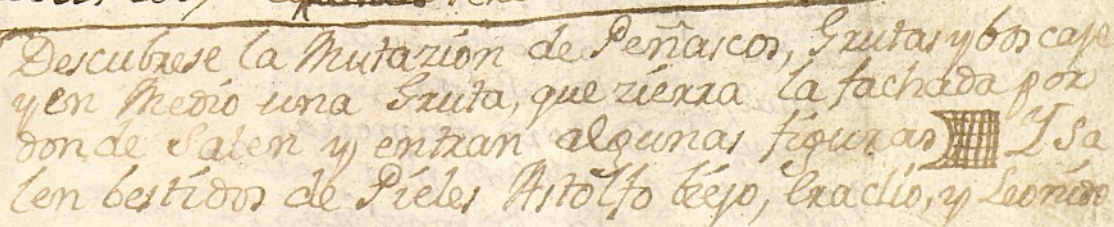 Descubrese la Mutazion de Peñascos, Grutas y boscaje
y en Medio una Gruta, que zierra la fachada por
donde Salen y entran algunas figuras Y Sa
len bestidos de Pieles Astolfo biejo, Eraclio, y Leonido